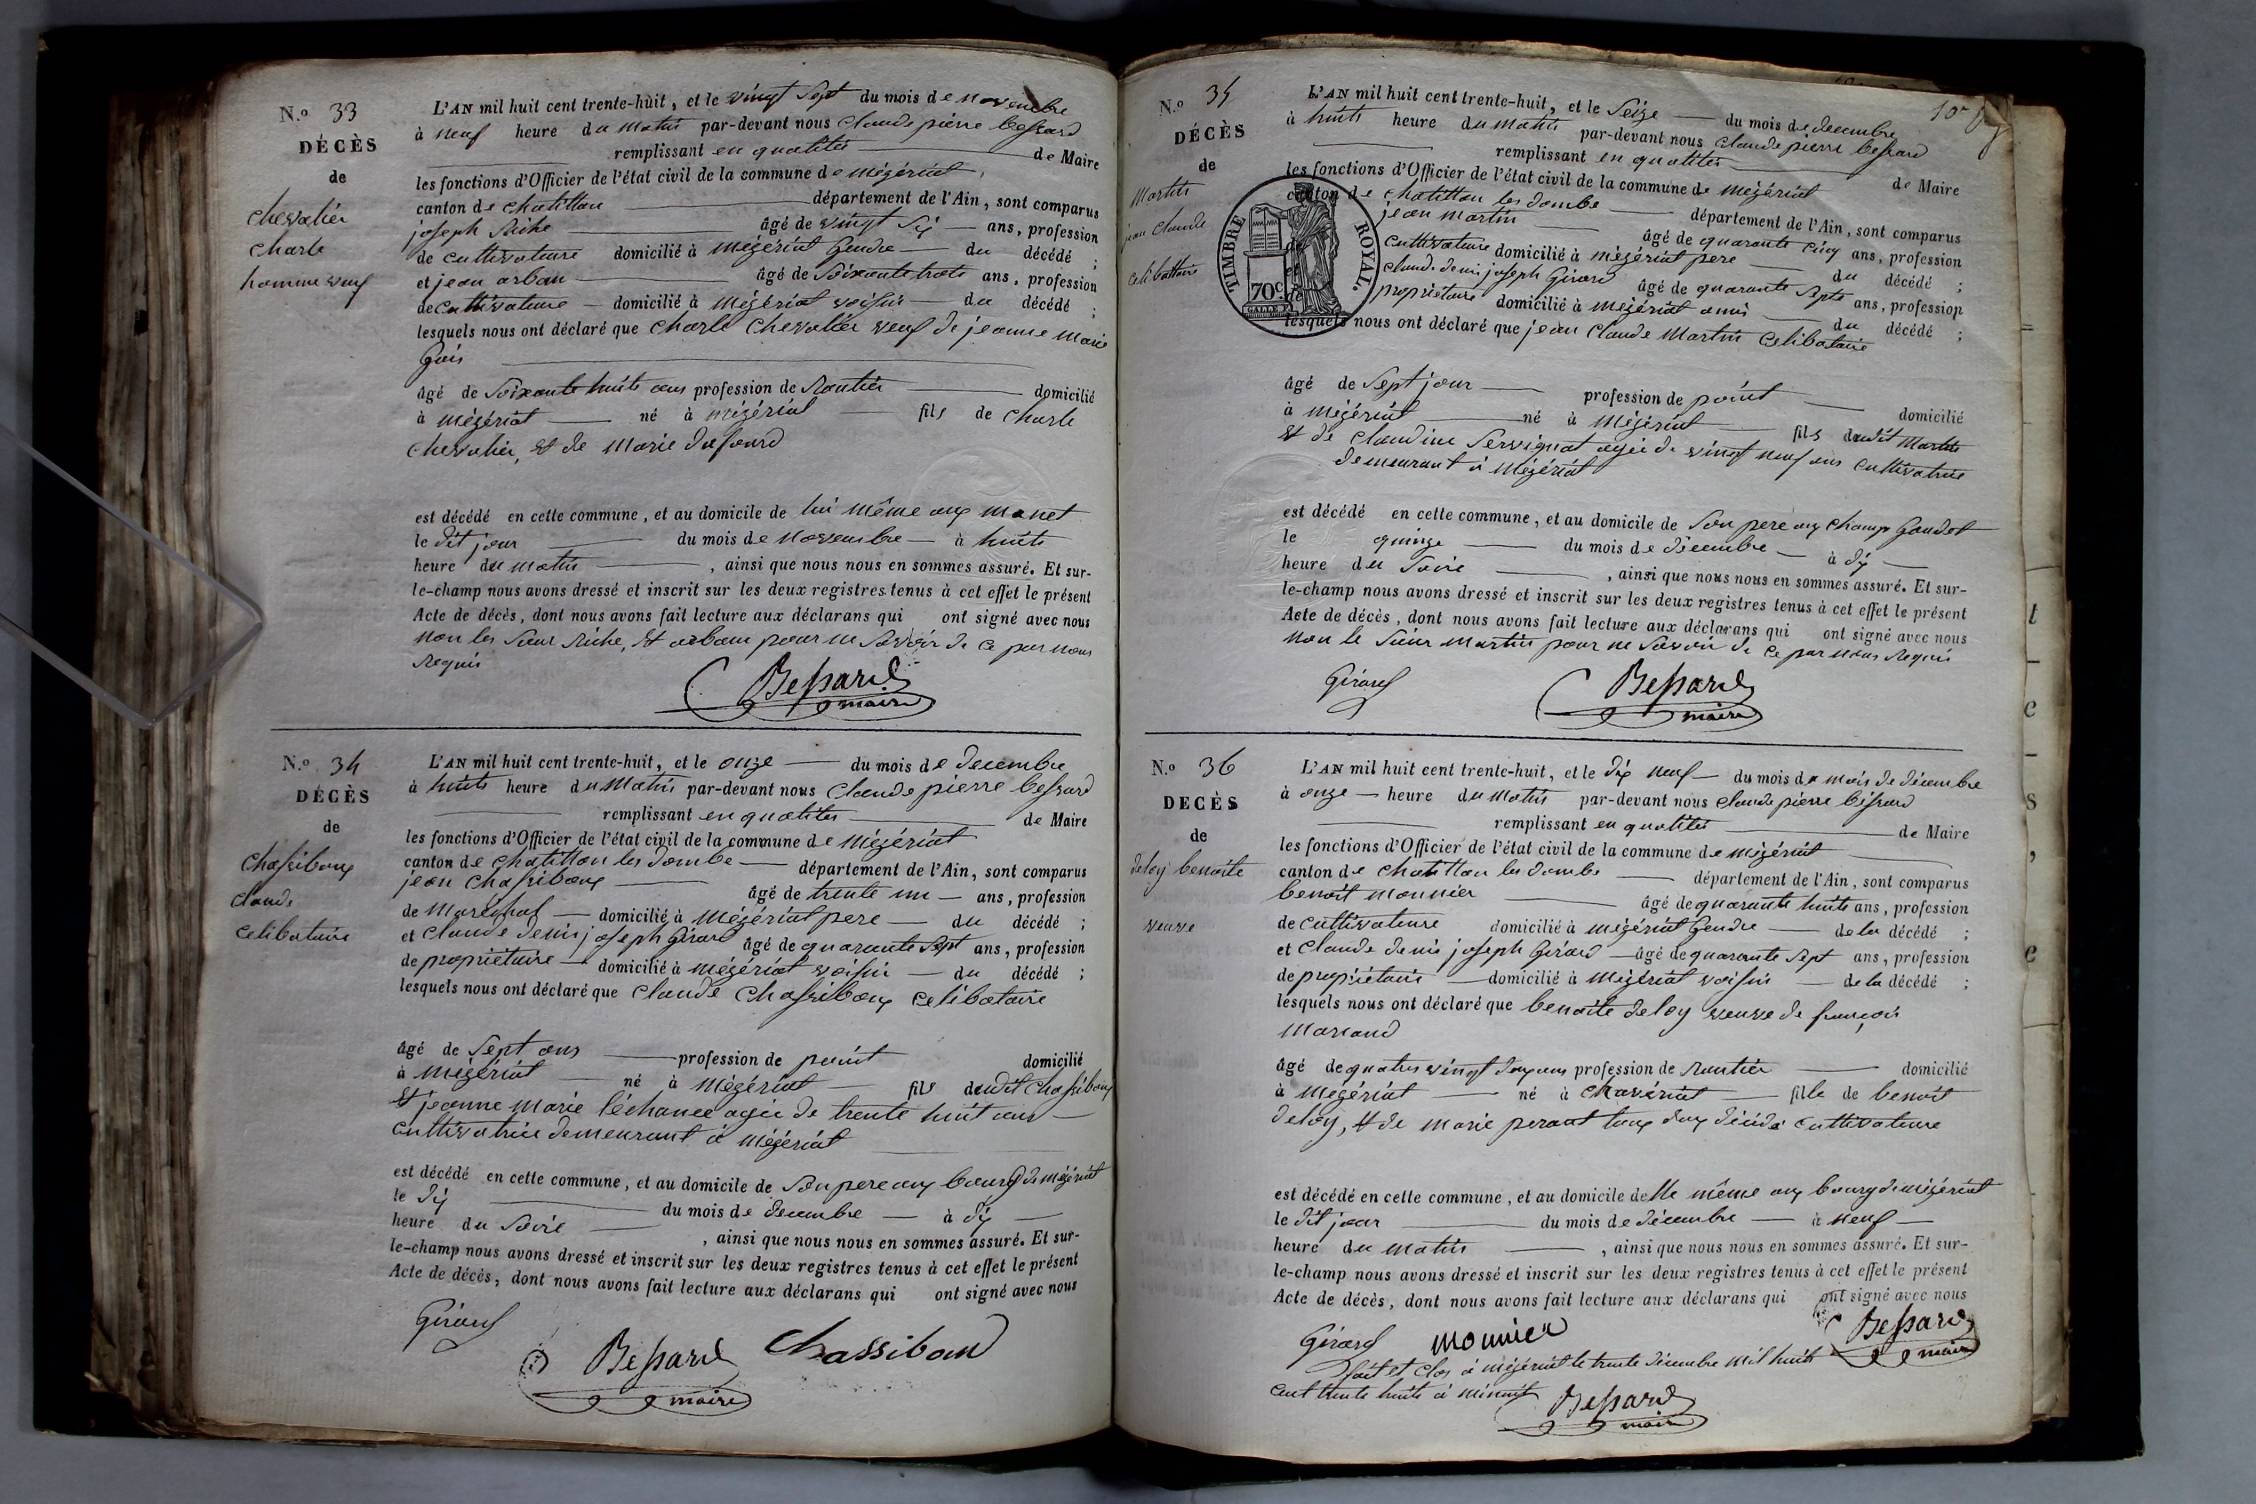 N.º 33
DÉCÈS
de
chevalier
charle
homme veuf
L'AN mil huit cent trente-huit, et le vingt sept du mois de novembre
à neuf heure du matin par-devant nous claude pierre bessard
remplissant en qualités de Maire
les fonctions d'Officier de l'état civil de la commune de mézériat,
canton de chatillon département de l'Ain, sont comparus
joseph Riche âgé de vingt six ans, profession
de cultivateure domicilié à mézériat gendre du décédé ;
et jean arban âgé de soixante trois ans, profession
de cultivateure domicilié à mézériat voisin du décédé ;
lesquels nous ont déclaré que charle chevalier veuf de jeanne marie
âgé de soixante huits ans profession de Rantier domicilié
à mézériat né à mézériat fils de charle
chevalier, et de marie dufourd
est décédé en cette commune, et au domicile de lui même aux manet
le dit jour du mois de novembre à huits
heure du matin , ainsi que nous nous en sommes assuré. Et sur-
le-champ nous avons dressé et inscrit sur les deux registres tenus à cet effet le présent
Acte de décès, dont nous avons fait lecture aux déclarans qui ont signé avec nous
non les sieur Riche, et arban pour ne savoir de ce par nous
Requis
Bessard
maire
N.º 34
DÉCÈS
de
chassiboux
claude
celibataire
L'AN mil huit cent trente-huit, et le onze du mois de decembre
à huits heure du matin par-devant nous claude pierre bessard
remplissant en qualités de Maire
les fonctions d'Officier de l'état civil de la commune de mézériat
canton de chatillon les dombe département de l'Ain, sont comparus
jean chassiboux âgé de trente un ans, profession
de maréchal domicilié à mézériat pere du décédé ;
et claude denis joseph Girard âgé de quarante sept ans, profession
de propriétaire domicilié à mézériat voisin du décédé ;
lesquels nous ont déclaré que claude chassiboux celibataire
âgé de sept ans profession de point domicilié
à mézériat né à mézériat fils dudit chassiboux
et jeanne marie léchanee agée de trente huit ans
cultivatrice demeurant à mézériat
est décédé en cette commune, et au domicile de son pere aux bourg de mézériat
le dix du mois de decembre à dix
heure du soire , ainsi que nous nous en sommes assuré. Et sur-
le-champ nous avons dressé et inscrit sur les deux registres tenus à cet effet le présent
Acte de décès, dont nous avons fait lecture aux déclarans qui ont signé avec nous
Girard
Bessard Chassiboud
maire
N.º 35
DÉCÈS
de
Martin
jean claude
celibattaire
L'AN mil huit cent trente-huit, et le seize du mois de decembre
à huits heure du matin par-devant nous claude pierre bessard
remplissant en qualités de Maire
les fonctions d'Officier de l'état civil de la commune de mézériat
canton de chatillon les dombe département de l'Ain, sont comparus
jean martin âgé de quarante cinq ans, profession
cultivateure domicilié à mézériat pere du décédé ;
claude denis joseph Girard âgé de quarante septs ans, profession
propriétaire domicilié à mézériat amis du décédé ;
lesquels nous ont déclaré que jean claude Martin celibataire
TIMBRE ROYAL.
70c.
âgé de sept jour profession de point domicilié
à mézériat né à mézériat fils dudit Martin
et de claudine servignat agée de vingt neuf ans cultivatrice
demeurant à mézériat
est décédé en cette commune, et au domicile de son pere aux champ gaudet
le quinze du mois de décembre à dix
heure du soire , ainsi que nous nous en sommes assuré. Et sur-
le-champ nous avons dressé et inscrit sur les deux registres tenus à cet effet le présent
Acte de décès, dont nous avons fait lecture aux déclarans qui ont signé avec nous
non le sieur martin pour ne savoir de ce par nous Requis
Girard Bessard
maire
N.º 36
DECÈS
de
deloy benoite
veuve
L'AN mil huit cent trente-huit, et le dix neuf du mois de mois de décembre
à onze heure du matin par-devant nous claude pierre béssard
remplissant en qualités de Maire
les fonctions d'Officier de l'état civil de la commune de mézériat
canton de chatillon les dombe département de l'Ain, sont comparus
benoit monnier âgé de quarante huits ans, profession
de cultivateure domicilié à mézériat gendre de la décédé ;
et claude denis joseph Girard âgé de quarante sept ans, profession
de propriétaire domicilié à mézériat voisin de la décédé ;
lesquels nous ont déclaré que benoite deloy veuve de françois
Morand
âgé de quatres vingt deux ans profession de Rantier domicilié
à mézériat né à chavériat fille de benoit
deloy, et de marie perant tous deux décédé cultivateure
est décédé en cette commune, et au domicile delle même aux bourg de mézériat
le dit jour du mois de décembre à neuf
heure du matin , ainsi que nous nous en sommes assuré. Et sur-
le-champ nous avons dressé et inscrit sur les deux registres tenus à cet effet le présent
Acte de décès, dont nous avons fait lecture aux déclarans qui ont signé avec nous
Girard monnier Bessard
maire
fait et clos à mézériat le trente décembre mil huits
cent trente huits à minuit Bessard
maire